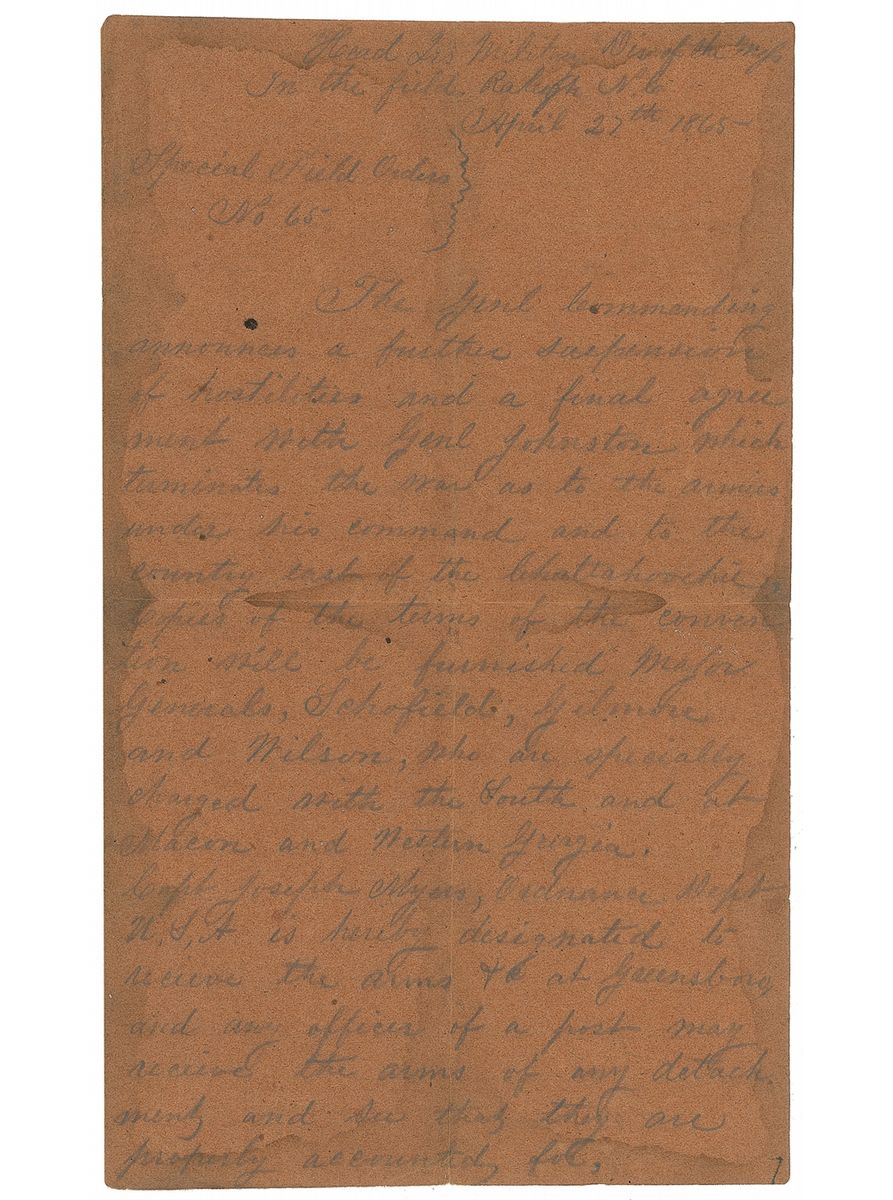 Head Qrs Military Div of the Miss
In the field Raleigh N C
April 27th 1865
Special Field Orders
No 65
The Genl Commanding
announces a further suspension
of hostilities and a final agree
ment with Genl Johnston which
terminates the war as to the armies
under his command and to the
country east of the Chattahoochie,
Copies of the terms of the conven
tion will be furnished Major
Generals, Schofield, Gilmore
and Wilson, who are specially
charged with the South and at
Macon and Western Gorgia.
Capt Joseph Myers, Ordnance Dept
U.S,A is hereby designated to
recieve the arms &c at Greensboro,
and any officer of a post may
recieve the arms of any detach
ment, and see that they are
properly accounted, for,